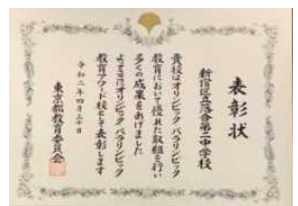 表彰状
新宿区立落合第二中学校
貴校はオリンピック・パラリンピック
教育において優れた取組を行い
多くの成果をあげました
よってここにオリンピック・パラリンピック
教育アワード校として表彰します
令和二年四月三十日
東京都教育委員会